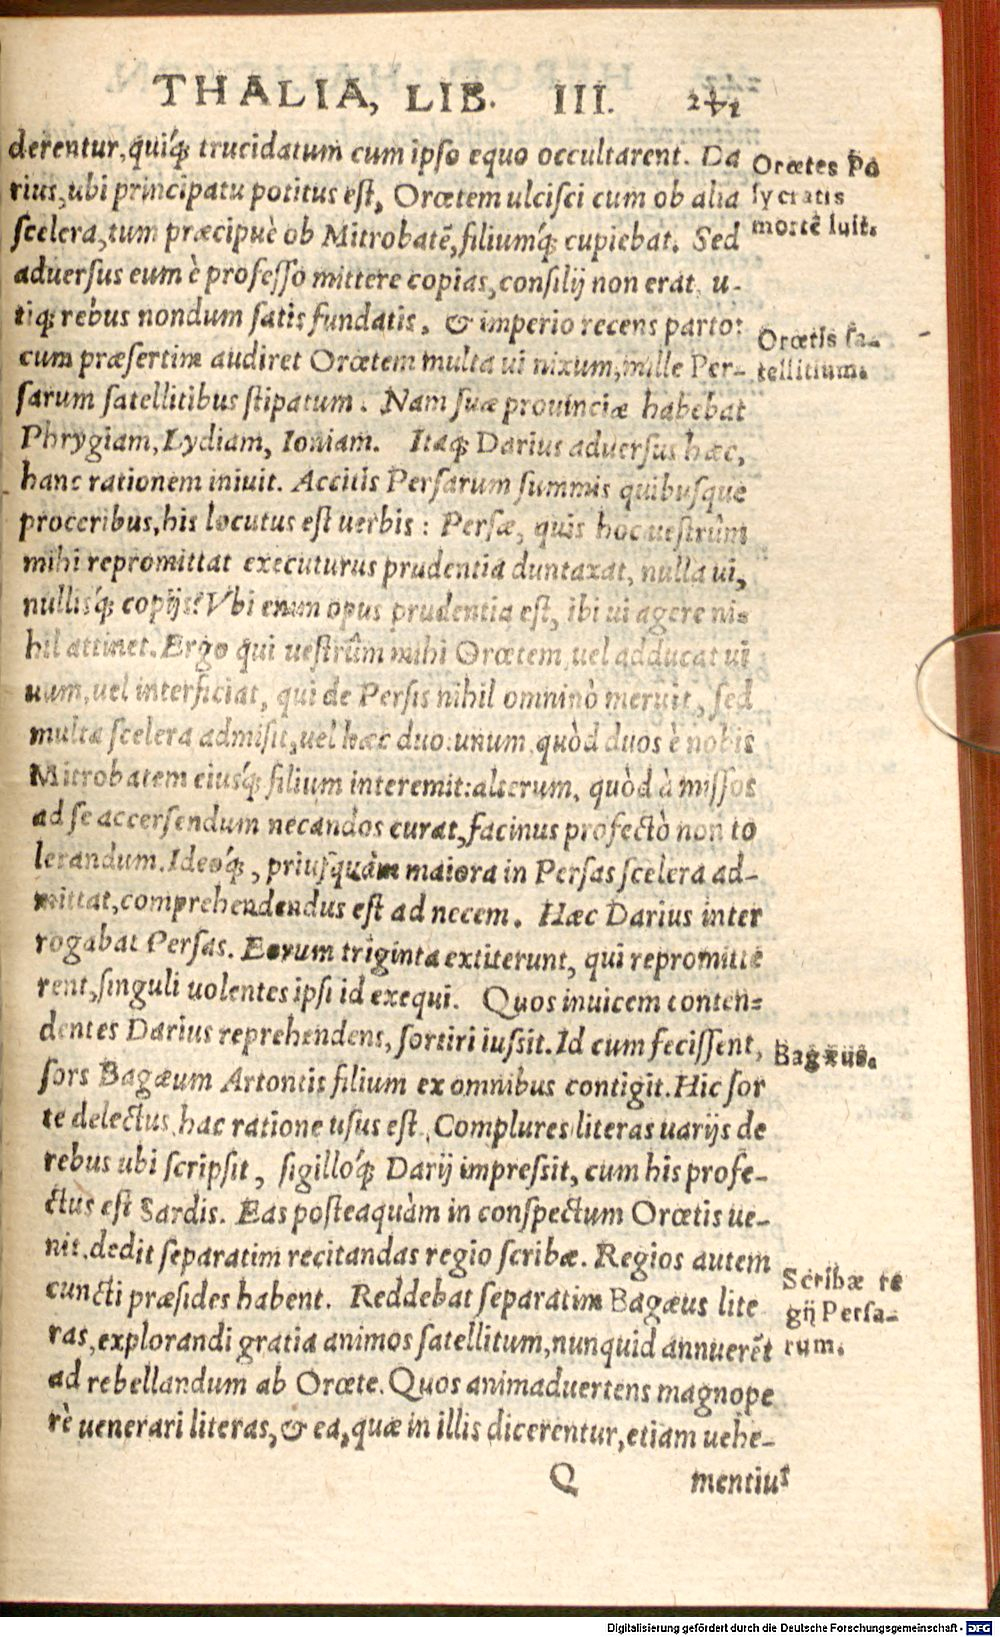 THALIA, LIB. III. 241
derentur, quiq́; trucidatum cum ipso equo occultarent. Da
rius, ubi principatu potitus est, Orœtem ulcisci cum ob alia
scelera, tum præcipuè ob Mitrobatē, filiumq́; cupiebat. Sed
aduersus eum è professo mittere copias, consilij non erat, u-
tiq; rebus nondum satis fundatis, & imperio recens parto:
cum præsertim audiret Orœtem multa ui nixum, mille Per-
sarum satellitibus stipatum. Nam suæ prouinciæ habebat
Phrygiam, Lydiam, Ioniam. Itaq; Darius aduersus hæc,
hanc rationem iniuit. Accitis Persarum summis quibusque
proceribus, his locutus est uerbis: Persæ, quis hoc uestrûm
mihi repromittat executurus prudentia duntaxat, nulla ui,
nullisq́; copijs? Vbi enim opus prudentia est, ibi ui agere ni-
hil attinet. Ergo qui uestrûm mihi Orœtem, uel adducat ui
uum, uel interficiat, qui de Persis nihil omninò meruit, sed
multa scelera admisit, uel hæc duo: unum, quòd duos è nobis
Mitrobatem eiusq́; filium interemit: alterum, quòd à missos
ad se accersendum necandos curat, facinus profectò non to
lerandum. Ideoq́;, priusquàm maiora in Persas scelera ad-
mittat, comprehendendus est ad necem. Hæc Darius inter
rogabat Persas. Eorum triginta extiterunt, qui repromitte
rent, singuli uolentes ipsi id exequi. Quos inuicem conten-
dentes Darius reprehendens, sortiri iussit. Id cum fecissent,
sors Bagæum Artontis filium ex omnibus contigit. Hic sor
te delectus, hac ratione usus est. Complures literas uarijs de
rebus ubi scripsit, sigilloq́; Darij impressit, cum his profe-
ctus est Sardis. Eas posteaquàm in conspectum Orœtis ue-
nit, dedit separatim recitandas regio scribæ. Regios autem
cuncti præsides habent. Reddebat separatim Bagæus lite
ras, explorandi gratia animos satellitum, nunquid annuerēt
ad rebellandum ab Orœte. Quos animaduertens magnope
rè uenerari literas, & ea, quæ in illis dicerentur, etiam uehe-
Q mentius
Orœtes Po
lycratis
mortē luit.
Orœtis sa-
tellitium.
Bagæus.
Scribæ re
gij Persa-
rum.
Digitalisierung gefördert durch die Deutsche Forschungsgemeinschaft - DFG